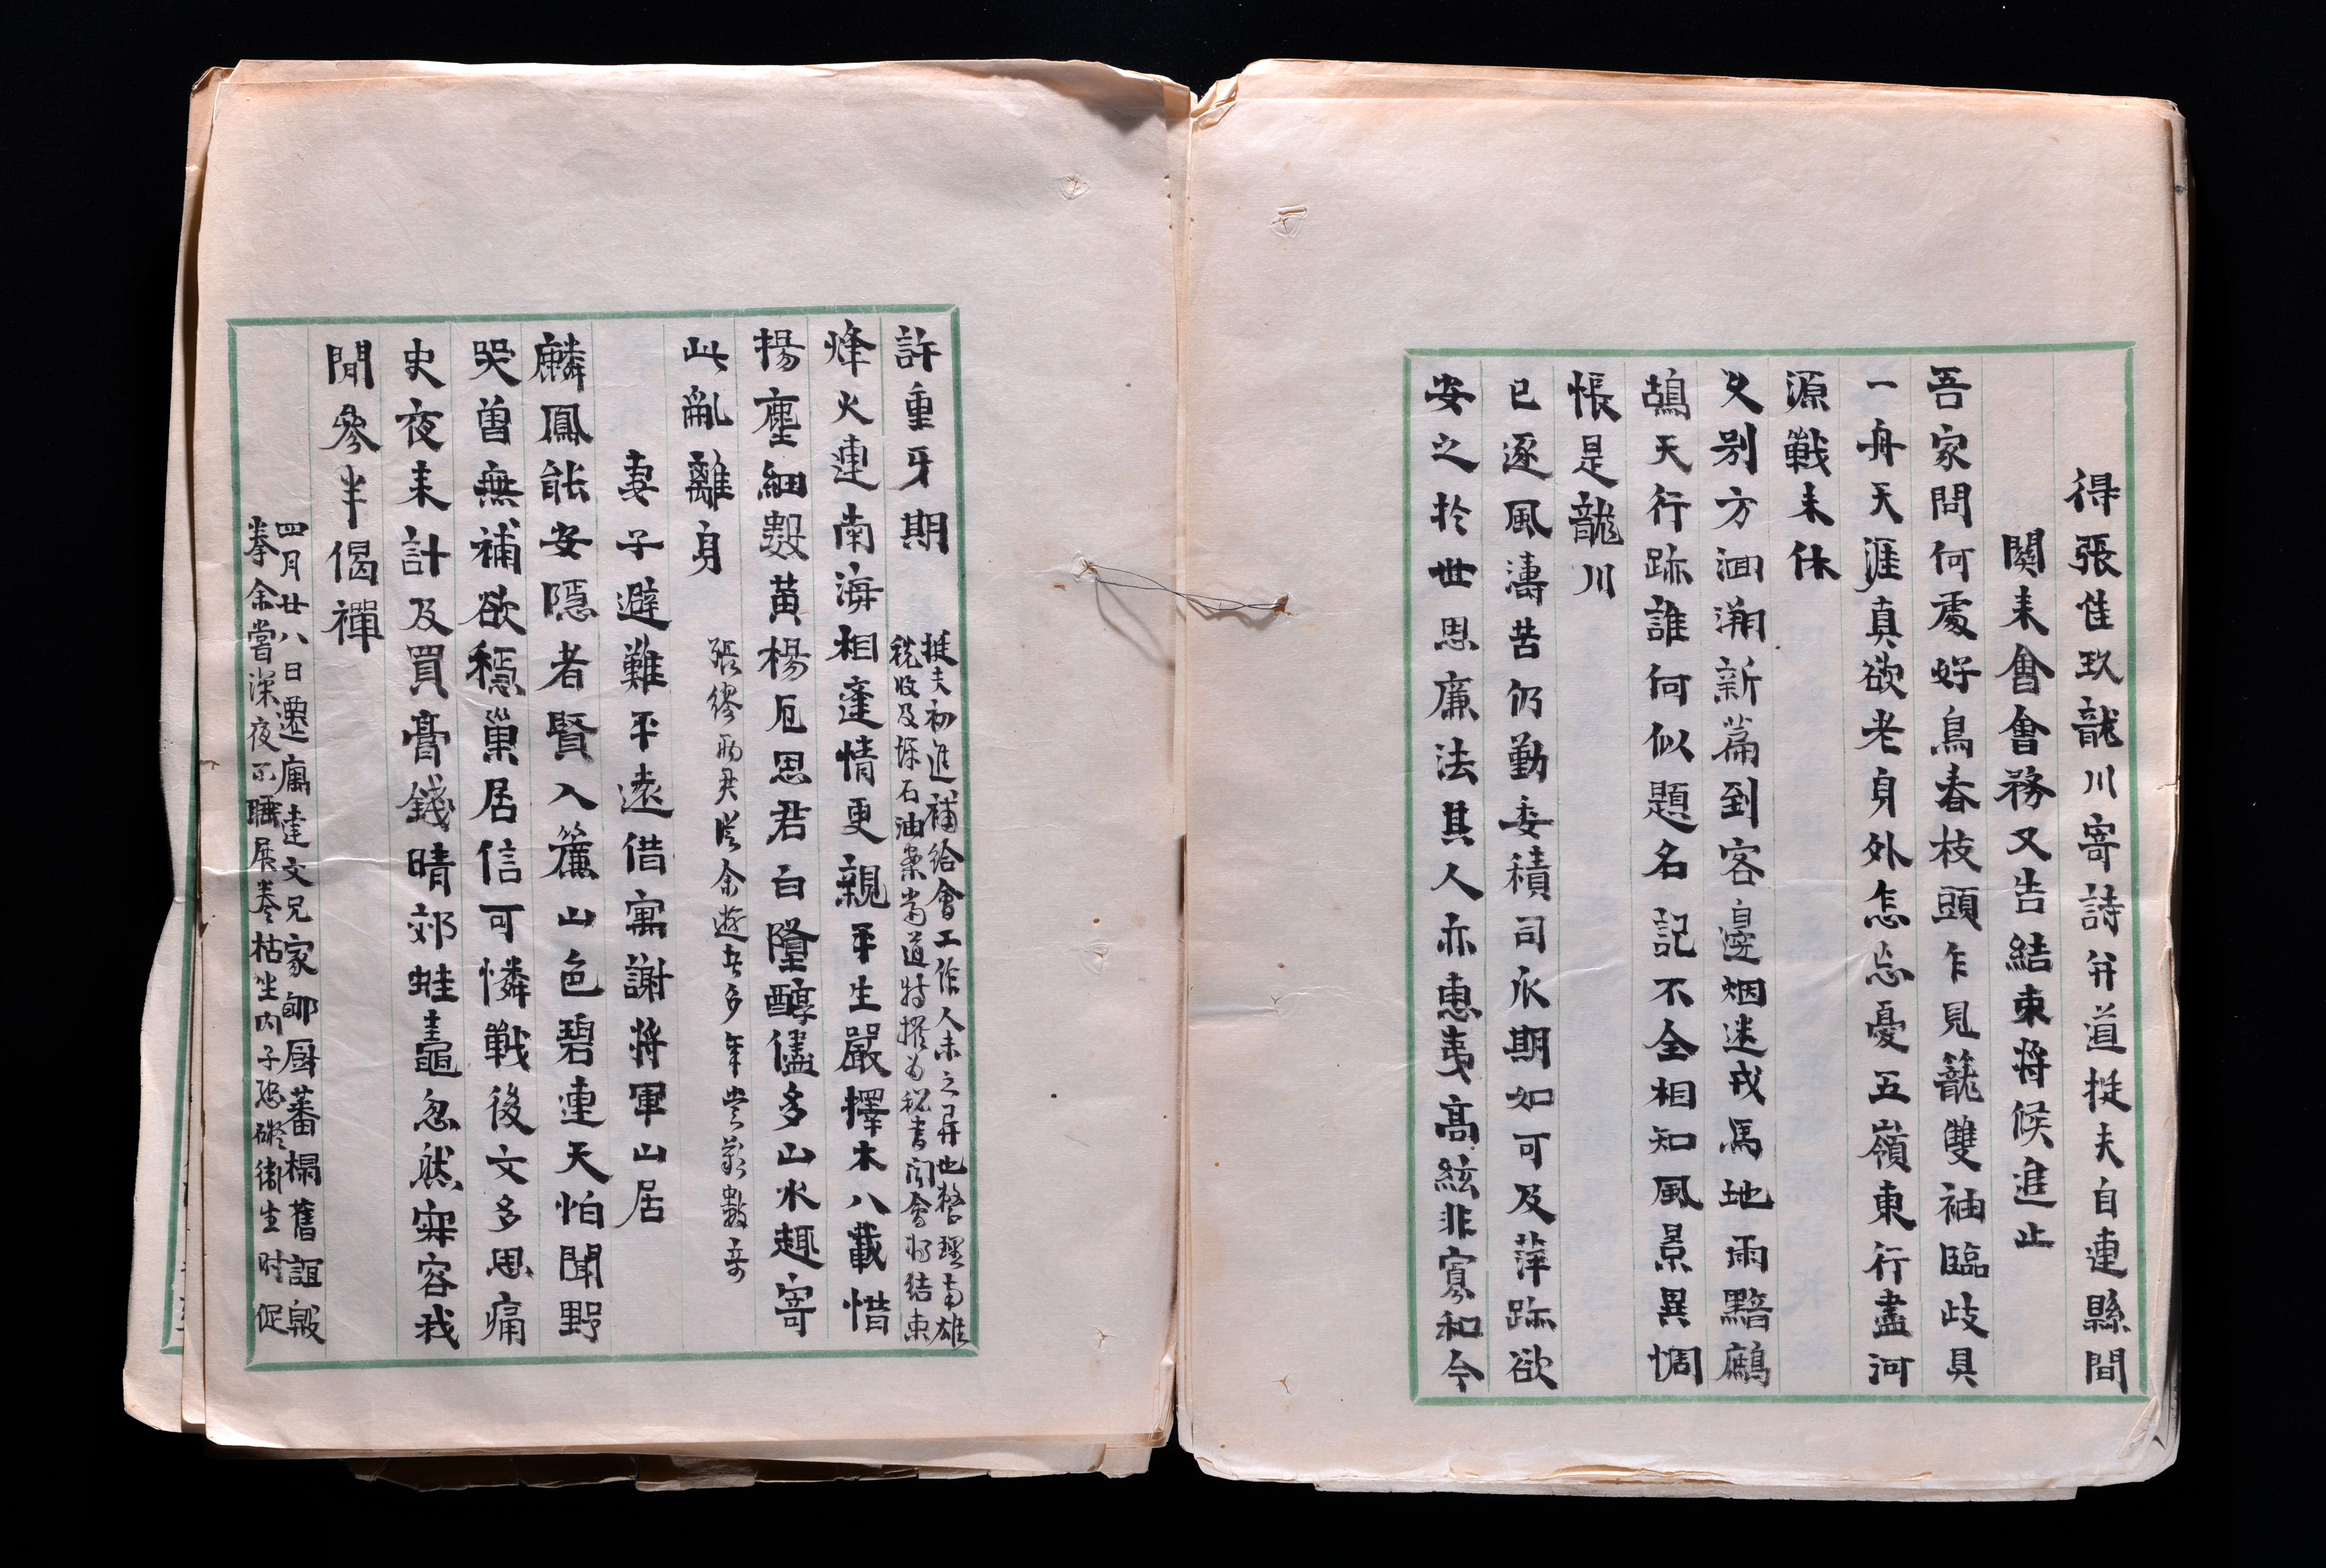 得張隹玖龍川寄詩幷道挺夫自連縣間
関来會會務又告結束将候進止
吾家問何處好鳥春枝頭乍見籠雙袖臨歧具
一舟天涯真欲老身外怎忘憂五嶺東行盡河
源戰未休
又别方洄溯新篇到客邊烟迷戎馬地雨黯鷓
鴣天行跡誰何似題名記不全相知風景異惆
悵是龍川
已逐風濤苦仍勤委積司瓜期如可及萍跡欲
安之於世思廉法其人亦惠夷高絃非寡和今
許重牙期
挺夫初進補給會工作人未之异也整理南雄
税收及坜石油業當道特擢为秘書闻會将结束
烽火連南海相逢情更親平生嚴擇木八載惜
揚塵細數黃楊厄思君白墮醇儘多山水趣寄
此亂離身
張繆兩君從余遊者多年嘗歎數奇
妻子避難平遠借寓謝將軍山居
麟鳳能安隱者賢入簾山色碧連天怕聞野
哭曾無補欲穩巢居信可憐戰後文多思痛
史夜来計及買膏錢晴郊蛙黽忽然寂容我
閒參半偈禪
四月廿八日遷寓達文兄家郇厨蕃榻舊誼殷
拳余嘗深夜不曈展卷枯坐内子恐礙衛生时促